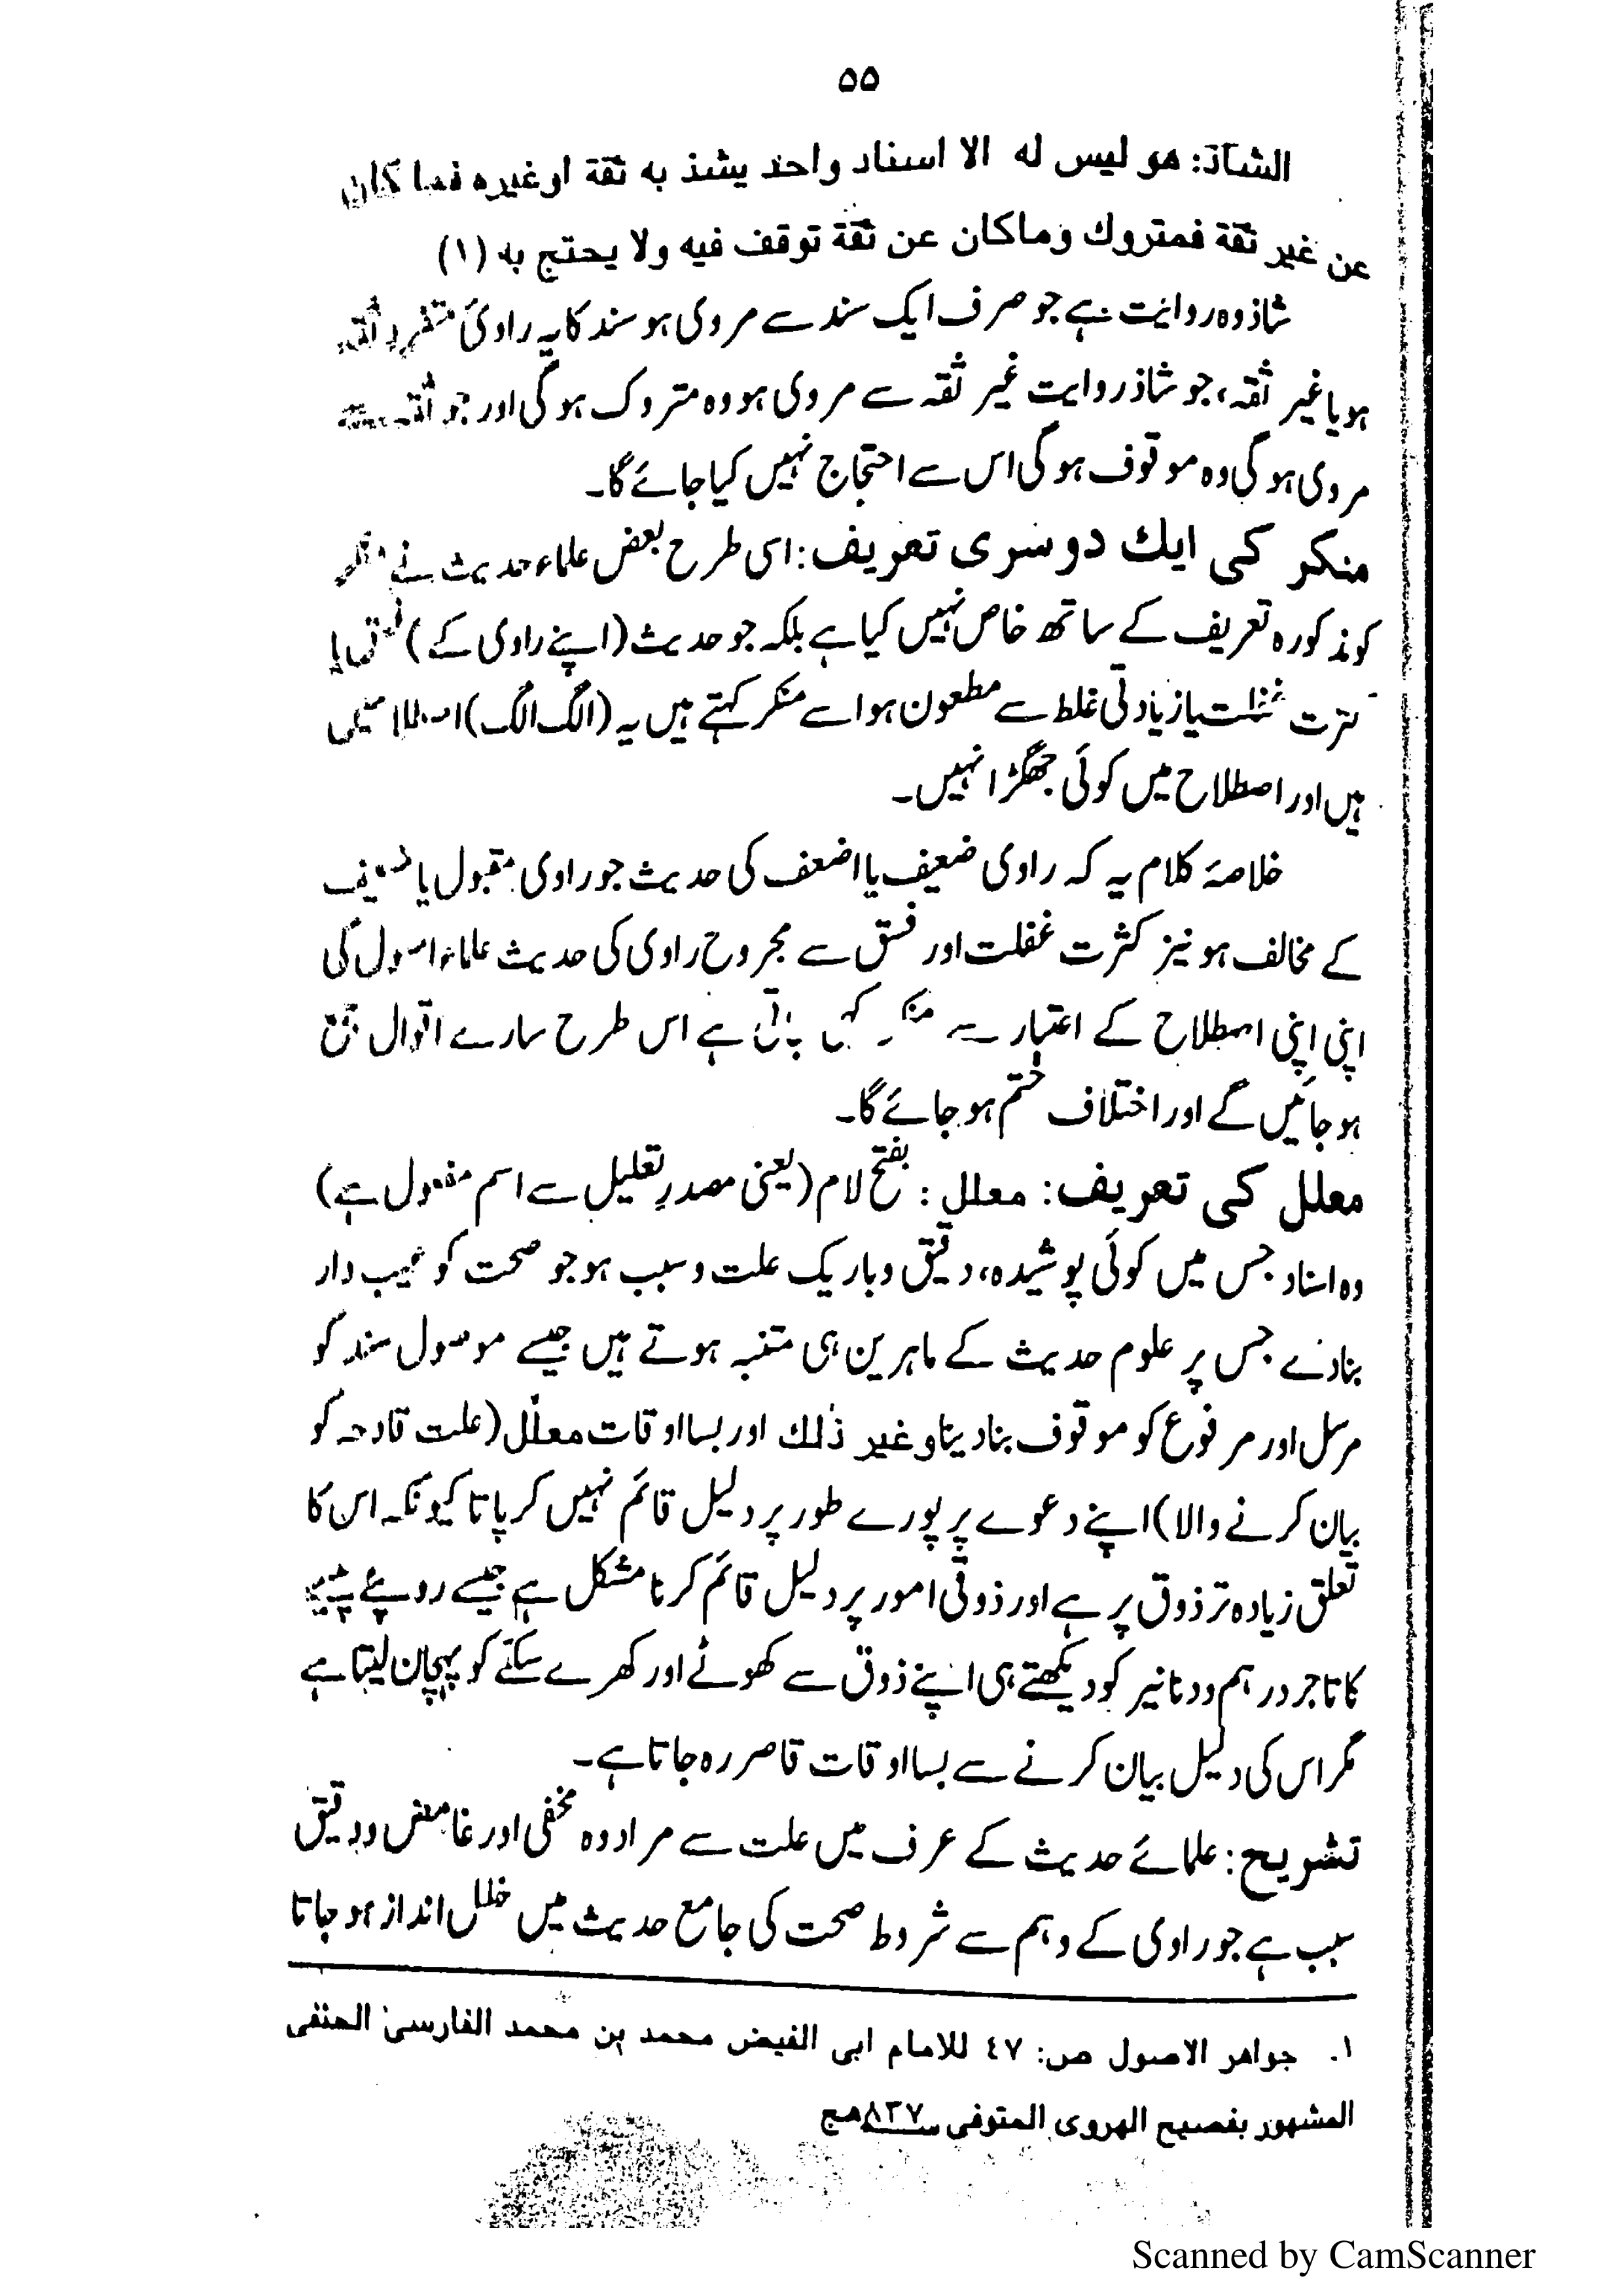 ۵۵
الشاذ: هو ليس له الا اسناد واحد يشذ به ثقة او غيره فما كان
عن غير ثقة فمتروك وماكان عن ثقة توقف فيه ولا يحتج به (۱)
شاذ وہ روایت ہے جو صرف ایک سند سے مروی ہو سند کا یہ راوی متفرد ثقہ
ہو یا غیر ثقہ، جو شاذ روایت غیر ثقہ سے مروی ہو وہ متروک ہوگی اور جو ثقہ سے
مروی ہوگی وہ موقوف ہوگی اس سے احتجاج نہیں کیا جائے گا۔
منکر کی ایک دوسری تعریف: اسی طرح بعض علماء حدیث نے منکر
کو مذکورہ تعریف کے ساتھ خاص نہیں کیا ہے بلکہ جو حدیث (اپنے راوی کے) فسق یا
کثرت غفلت یا زیادتی غلط سے مطعون ہو اسے منکر کہتے ہیں یہ (الگ الگ) اصطلاحیں
ہیں اور اصطلاح میں کوئی جھگڑا نہیں۔
خلاصۂ کلام یہ کہ راوی ضعیف یا اضعف کی حدیث جو راوی مقبول یا ضعیف
کے مخالف ہو نیز کثرت غفلت اور فسق سے مجروح راوی کی حدیث علماء اصول کی
اپنی اپنی اصطلاح کے اعتبار سے منکر کہی جاتی ہے اس طرح سارے اقوال جمع
ہو جائیں گے اور اختلاف ختم ہو جائے گا۔
معلل کی تعریف: معلل: بفتح لام (یعنی مصدرِ تعلیل سے اسم مفعول ہے)
وہ اسناد جس میں کوئی پوشیدہ، دقیق و باریک علت و سبب ہو جو صحت کو عیب دار
بنادے جس پر علوم حدیث کے ماہرین ہی متنبہ ہوتے ہیں جیسے موصول سند کو
مرسل اور مرفوع کو موقوف بنا دینا وغیر ذٰلک اور بسا اوقات معلّل (علت قادحہ کو
بیان کرنے والا) اپنے دعوے پر پورے طور پر دلیل قائم نہیں کر پاتا کیونکہ اس کا
تعلق زیادہ تر ذوق پر ہے اور ذوقی امور پر دلیل قائم کرنا مشکل ہے جیسے روپئے پیسے
کا تاجر درہم و دنانیر کو دیکھتے ہی اپنے ذوق سے کھوٹے اور کھرے سکّے کو پہچان لیتا ہے
مگر اس کی دلیل بیان کرنے سے بسا اوقات قاصر رہ جاتا ہے۔
تشریح: علمائے حدیث کے عرف میں علت سے مراد وہ مخفی اور غامض و دقیق
سبب ہے جو راوی کے وہم سے شروط صحت کی جامع حدیث میں خلل انداز ہو جاتا
۱. جواهر الاصول ص: ٤٧ للامام ابی الفیض محمد بن محمد الفارسی الحنفی
المشهور بفصیح الهروی المتوفی ۸۳۷ھج
Scanned by CamScanner